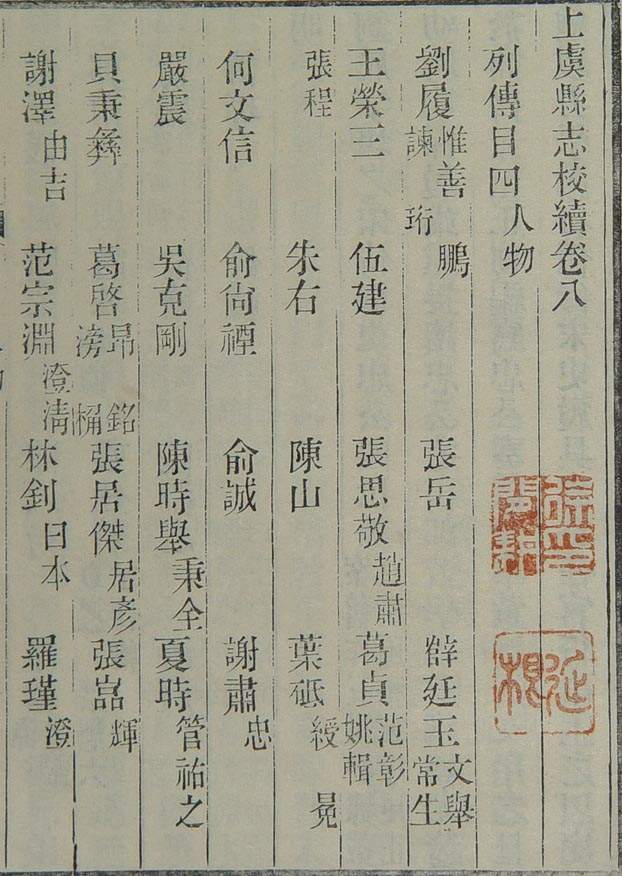 上虞縣志校續卷八
列傳目四人物
劉履惟善鵬諫珩張岳薛廷玉文舉常生
王榮三伍建張思敬趙肅葛貞范彰姚輯
張程朱右陳山葉砥綬冕
何文信俞尙禋俞誠謝肅忠
嚴震吳克剛陳時舉秉全夏時管祐之
貝秉彝葛啓昂銘滂桷張居傑居彥張嵓輝
謝澤由吉范宗淵澄清林釗日本羅瑾澄